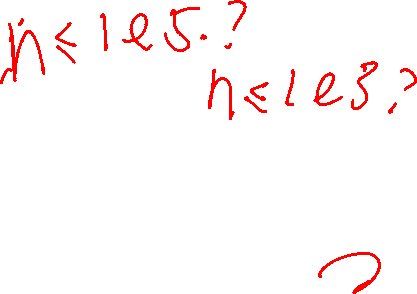 n≤1e5.?
n≤1e3?